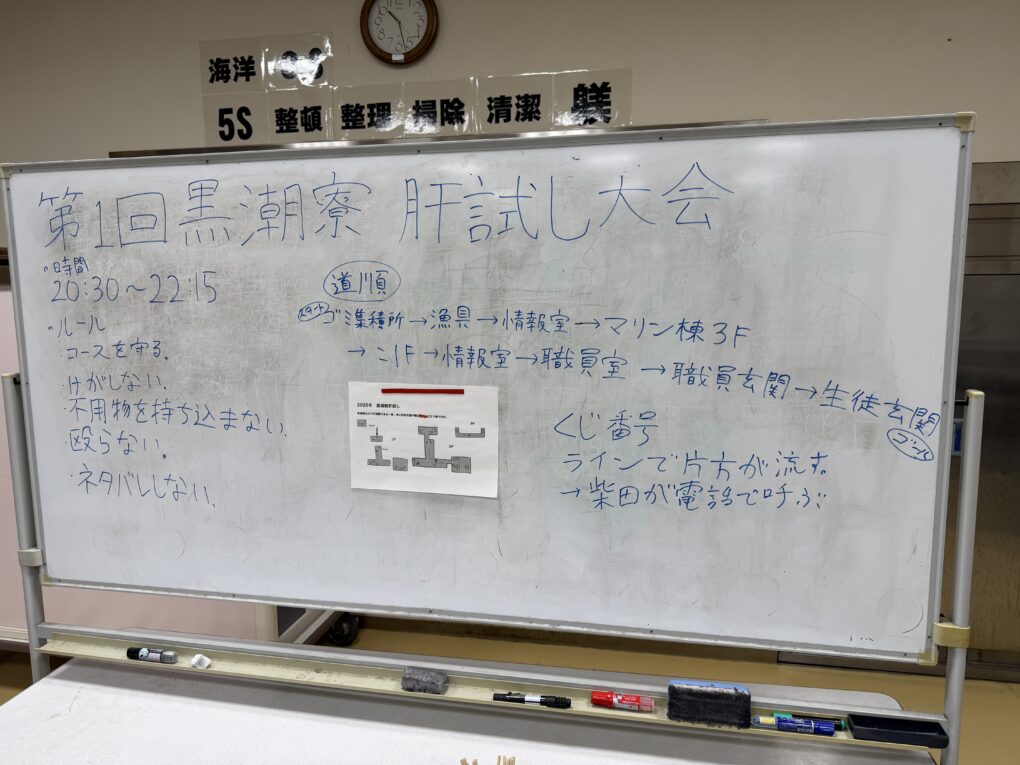 海洋
5S 整頓 整理 掃除 清潔 躾
第1回黒潮寮 肝試し大会
・時間
20:30～22:15
・ルール
コースを守る。
けがしない。
不用物を持ち込まない。
殴らない。
ネタバレしない。
道順
スタート ゴミ集積所→漁具→情報室→マリン棟3F
→ 〃1F→情報室→職員室→職員玄関→生徒玄関
ゴール
2025年 黒潮寮肝試し
くじ番号
ラインで片方が流す。
→柴田が電話で呼ぶ